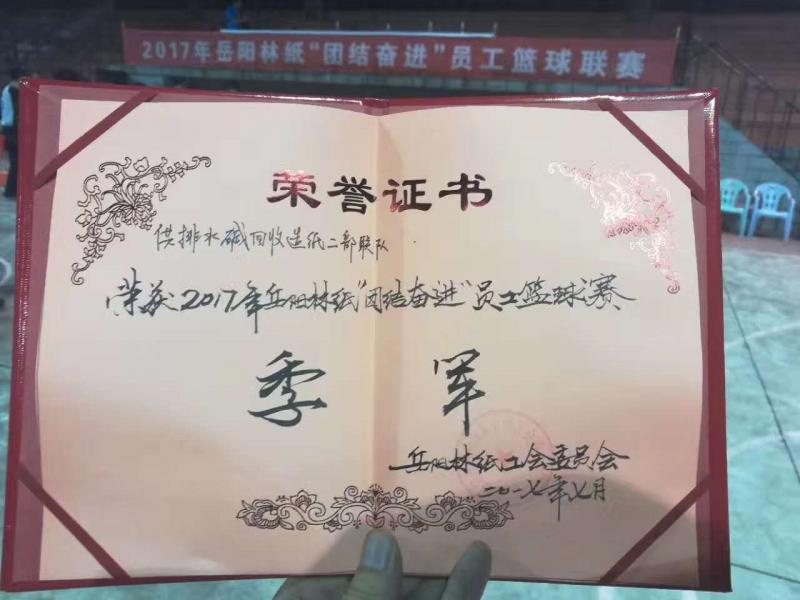 2017年岳阳林纸“团结奋进”员工篮球联赛
荣誉证书
供排水碱回收造纸二部联队
荣获2017年岳阳林纸“团结奋进”员工篮球赛
季军
岳阳林纸工会委员会
二〇一七年七月